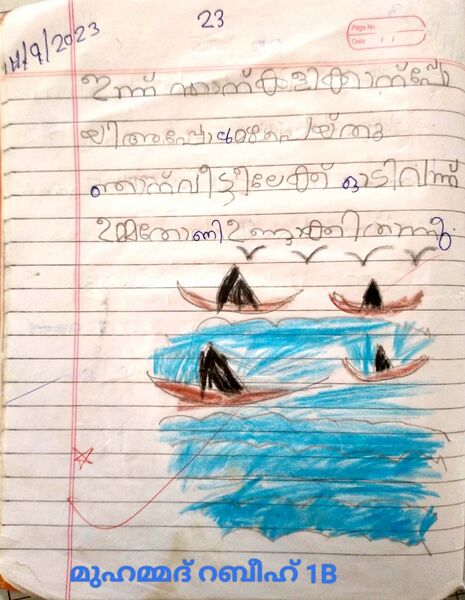 23
Page No
Date
14/9/2023
ഇന്ന് ഞാന് കളിക്കാന്പോ
യി അപ്പോൾ മഴ പെയ്തു
ഞാന് വീട്ടിലേക്ക് ഓടിവന്ന്
ഉമ്മതോണി ഉണ്ടാക്കിതന്നു
മുഹമ്മദ് റബീഹ് 1B